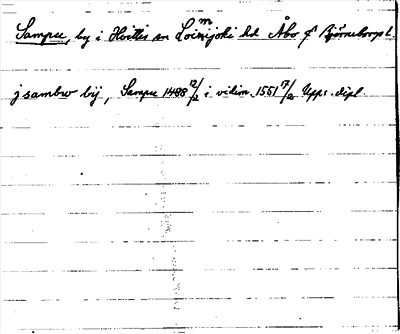 Sampu, by i Hvittis sn Loimijoki hd Åbo o Björneborgs l.
j sambw bij, Sampu 1488 12/2 i vidim. 1551 17/2 Upps. dipl.